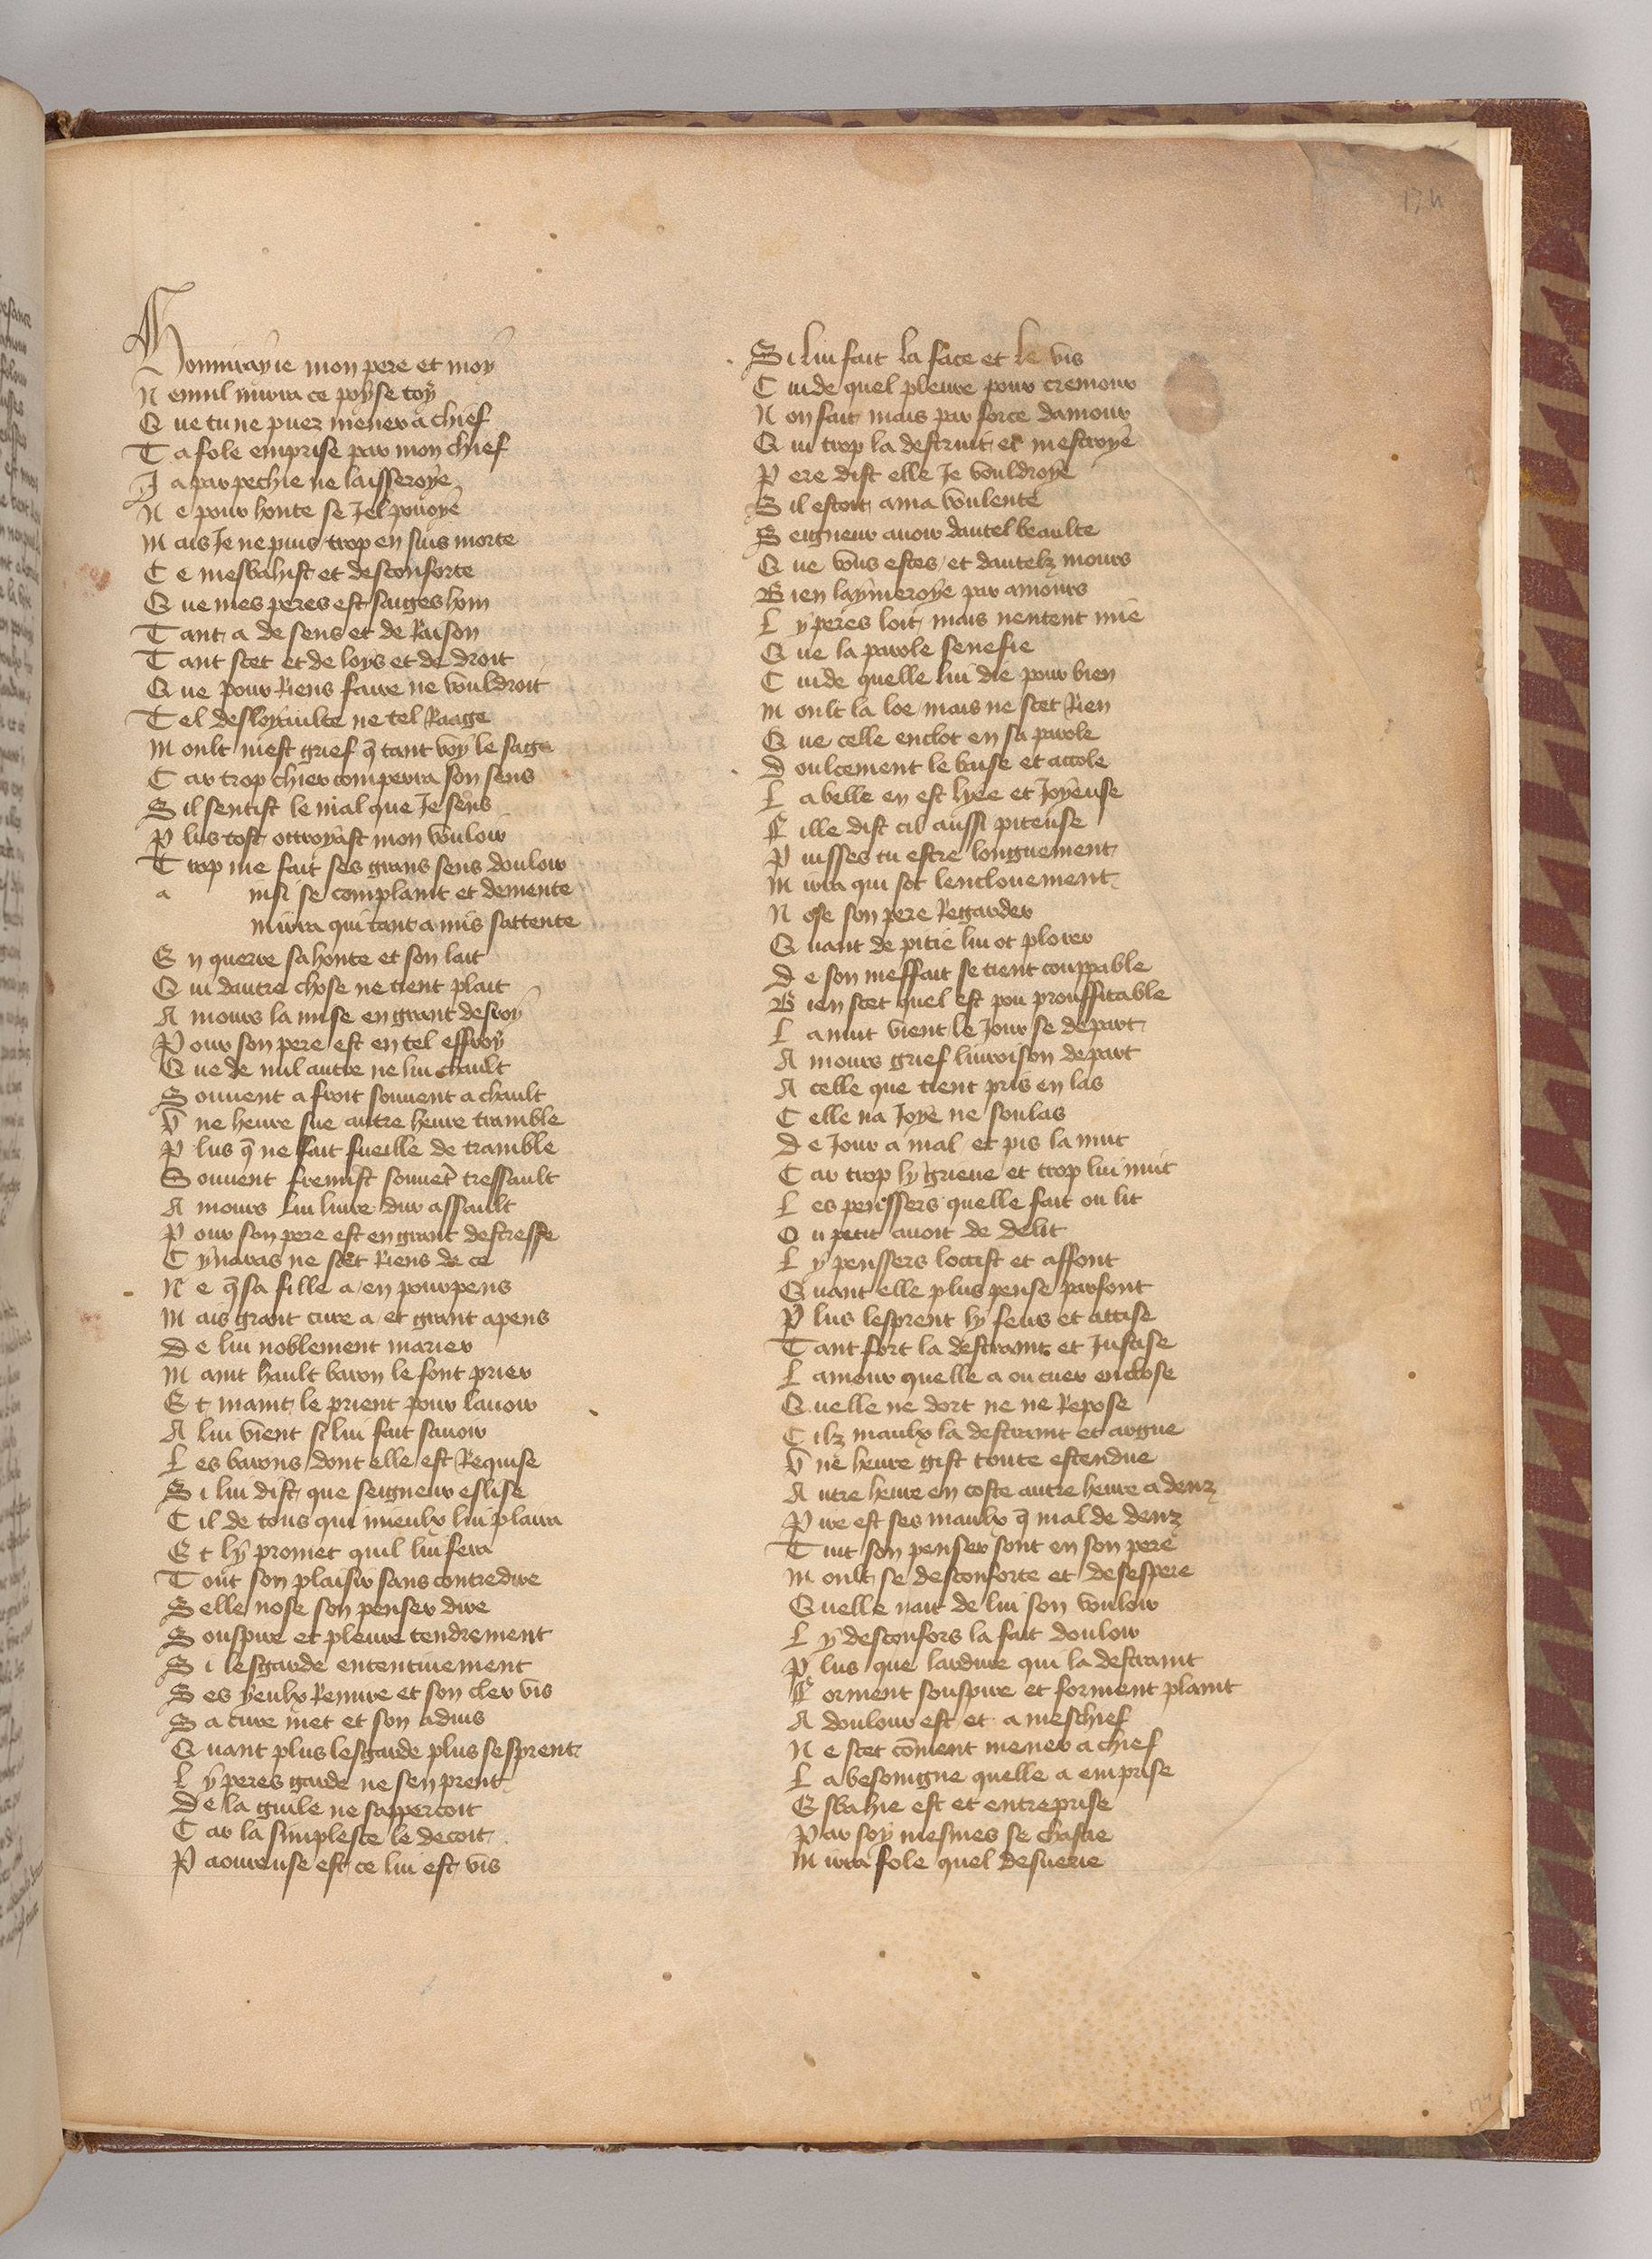 174
Honniray ie mon pere et moy
N ennil mirra ce poyse toy
Q ue tu ne puez mener a chief
T a fole emprise par mon chief
J a par pechie ne laisseroye
N e pour honte se Jel pouoye
M ais Je ne puis trop en suis morte
C e mesbahist et desconforte
Q ue mes peres est saiges hom
T ant a de sens et de Raison
T ant scet et de loys et de droit
Q ue pour Riens faire ne vouldroit
T el desloyaulte ne tel Raage
M oult mest grief q̄ tant voy le sage
C ar trop chier comperra son sens
S il sentist le mal que Je sens
P lus tost ottroyast mon vouloir
T rop me fait ses grans sens douloir
a insi se complaint et demente
mirra qui tant a mis sattente
E n querre sa honte et son lait
Q ui dautre chose ne tient plait
A mours la mise en grant desroy
P our son pere est en tel effroy
Q ue de nul autre ne lui chault
S ouuent a froit souuent a chault
V ne heure sue autre heure tramble
P lus q̄ ne fait fueille de tramble
S ouuent fremist souuēt tressault
A mours lui liure dur assault
P our son pere est en grant destresse
C ynaras ne scet Riens de ce
N e q̄ sa fille a en pourpens
M ais grant cure a et grant apens
D e lui noblement marier
M aint hault baron le font prier
E t maint le prient pour lauoir
A lui vient si lui fait sauoir
L es barons dont elle est Requise
S i lui dist que seigneur eslise
C il de tous qui mieulx lui plaira
E t ly promet quil lui fera
T out son plaisir sans contredire
S elle nose son penser dire
S ouspire et pleure tendrement
S i lesgarde ententiuement
S es yeulx Remire et son cler vis
S a cure met et son aduis
Q uant plus lesgarde plus sesprent
L y peres garde ne sen prent
D e la guile ne sappercoit
C ar la simplesce le decoit
P aoureuse est ce lui est vis
S i lui fait la face et le vis
C uide quel pleure pour cremour
N on fait mais par force damour
Q ui trop la destruit et mestroye
P ere dist elle Je vouldroye
S il estoit a ma voulente
S eigneur auoir dautel beaulte
Q ue vous estes et dautelz mours
B ien laymeroye par amours
L y peres loit mais nentent mie
Q ue la parole senefie
C uide quelle lui die pour bien
M oult la loe mais ne scet Rien
Q ue celle enclot en sa parole
D oulcement le baise et accole
L a belle en est lyee et Joyeuse
F ille dist cil aussi piteuse
P uisses tu estre longuement
M irra qui sot lenclouement
N ose son pere Regarder
Q uant de pitie lui ot plorer
D e son meffait se tient couppable
B ien scet quel est pou prouffitable
L a nuit vient le Jour se depart
A mours grief liuroison depart
A celle que tient pris en las
C elle na Joye ne soulas
D e Jour a mal et pis la nuit
C ar trop ly grieue et trop lui nuit
L es penssers quelle fait ou lit
O u petit auoit de delit
L y penssers loccist et affont
Q uant elle plus pense parfont
P lus lesprent ly feus et attise
T ant fort la destraint et Justise
L amour quelle a ou cuer enclose
Q uelle ne dort ne ne Repose
C ilz maulx la destraint et argue
V ne heure gist toute estendue
A utre heure en coste autre heure a denz
P ire est ses maulx q̄ mal de denz
T uit son penser sont en son pere
M oult se desconforte et desespere
Q uelle nait de lui son vouloir
L y desconfors la fait douloir
P lus que lardure qui la destraint
F orment souspire et forment plaint
A doulour est et a meschief
N e scet cōment mener a chief
L a besoingne quelle a emprise
E sbahie est et entreprise
P ar soy mesmes se chastie
M irra fole quel desuerie
174